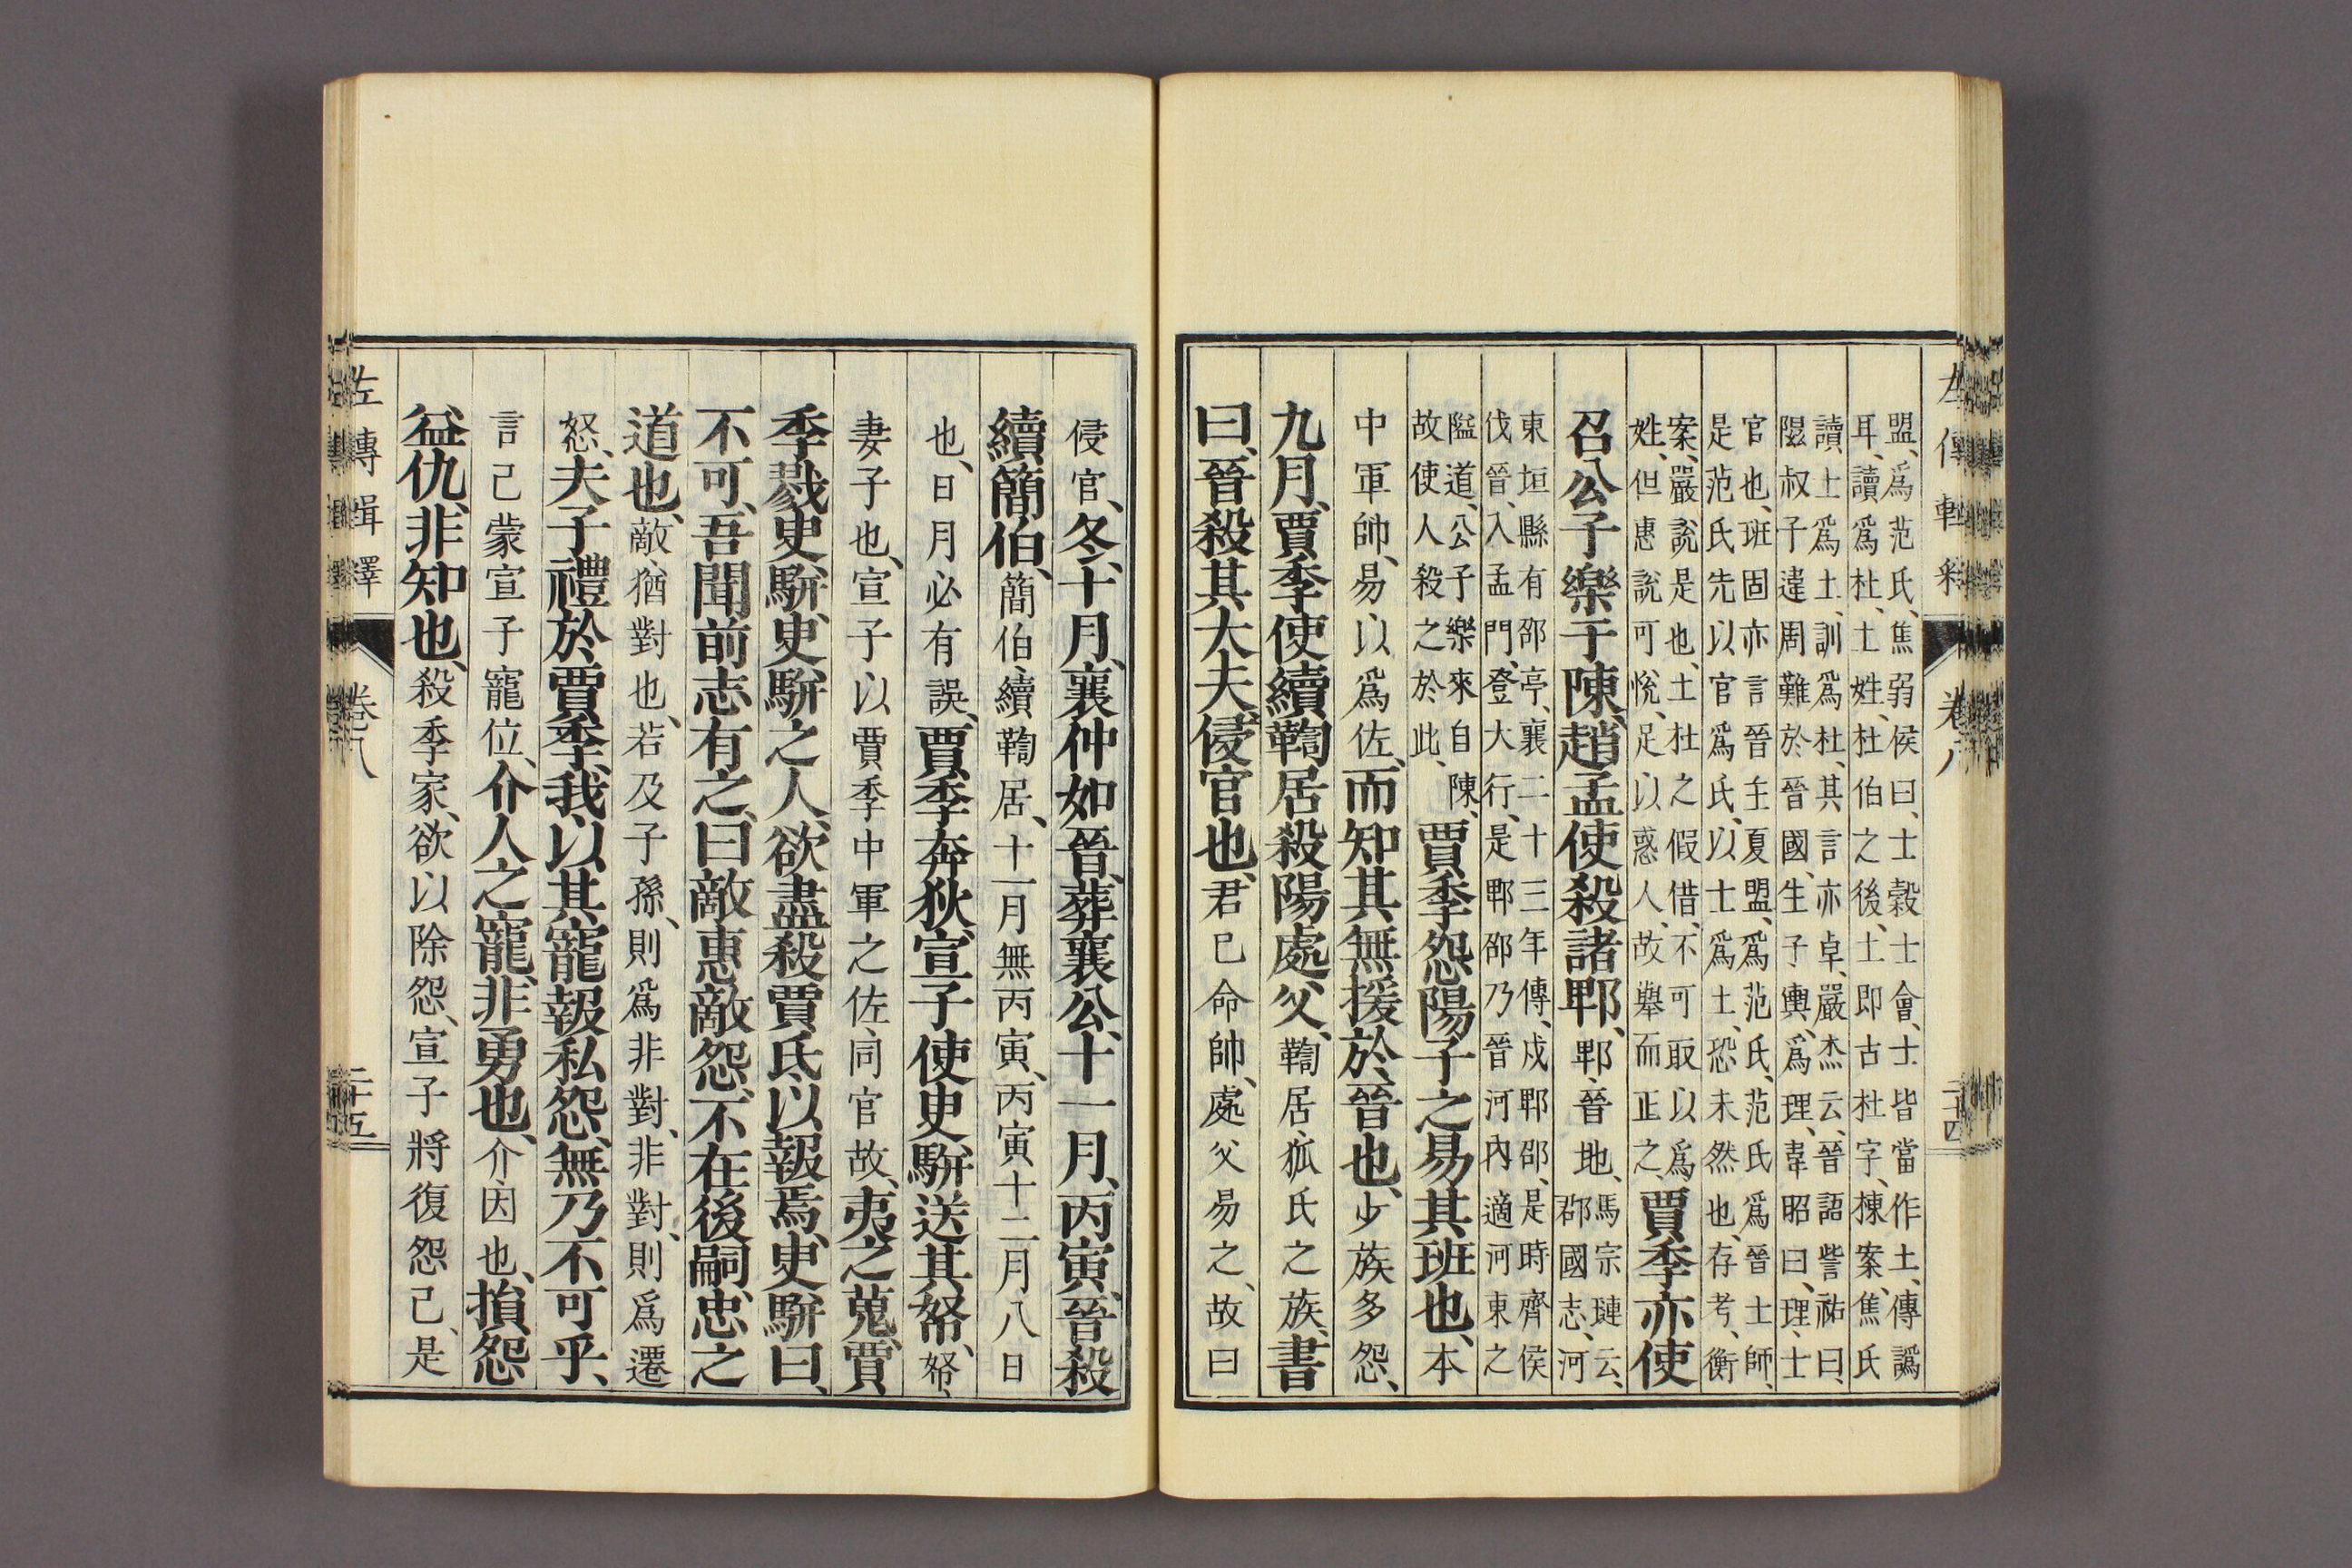 盟、爲范氏、焦弱侯曰、士縠士會、士皆當作土、傳譌
耳、讀爲杜、土姓、杜伯之後、土即古杜字、棟案、焦氏
讀士爲土、訓爲杜、其言亦卓、嚴杰云、晉語訾祐曰、
隰叔子違周難於晉國、生子輿、爲理、韋昭曰、理、士
官也、班固亦言晉主夏盟、爲范氏、范氏爲晉士師、
是范氏先以官爲氏、以士爲土、恐未然也、存考、衡
案、嚴說是也、土杜之假借、不可取以爲
姓、但惠說可悅、足以惑人、故擧而正之、
賈季亦使
召公子樂于陳、趙孟使殺諸郫、郫、晉地、
馬宗璉云、
郡國志、河
東垣縣有邵亭、襄二十三年傳、戍郫邵、是時齊侯
伐晉、入孟門、登大行、是郫邵乃晉河內適河東之
隘道、公子樂來自陳、
故使人殺之於此、
賈季怨陽子之易其班也、本
中軍帥、易、以爲佐、而知其無援於晉也、少族多怨、
九月、賈季使續鞫居殺陽處父、鞫居、狐氏之族、書
曰、晉殺其大夫、侵官也、君已命帥、處父易之、故曰
侵官、冬、十月、襄仲如晉、葬襄公、十一月、丙寅、晉殺
續簡伯、簡伯、續鞫居、十一月無丙寅、丙寅十二月八日
也、日月必有誤、賈季奔狄、宣子使臾駢送其帑、帑、
妻子也、宣子以賈季中軍之佐、同官故、夷之蒐、賈
季戮臾駢、臾駢之人、欲盡殺賈氏以報焉、臾駢曰、
不可、吾聞前志有之、曰敵惠敵怨、不在後嗣、忠之
道也、敵、猶對也、若及子孫、則爲非對、非對、則爲遷
怒、夫子禮於賈季、我以其寵報私怨、無乃不可乎、
言己蒙宣子寵位、介人之寵、非勇也、介、因也、損怨
益仇、非知也、殺季家、欲以除怨、宣子將復怨己、是
左傳輯釋
卷八
二十五